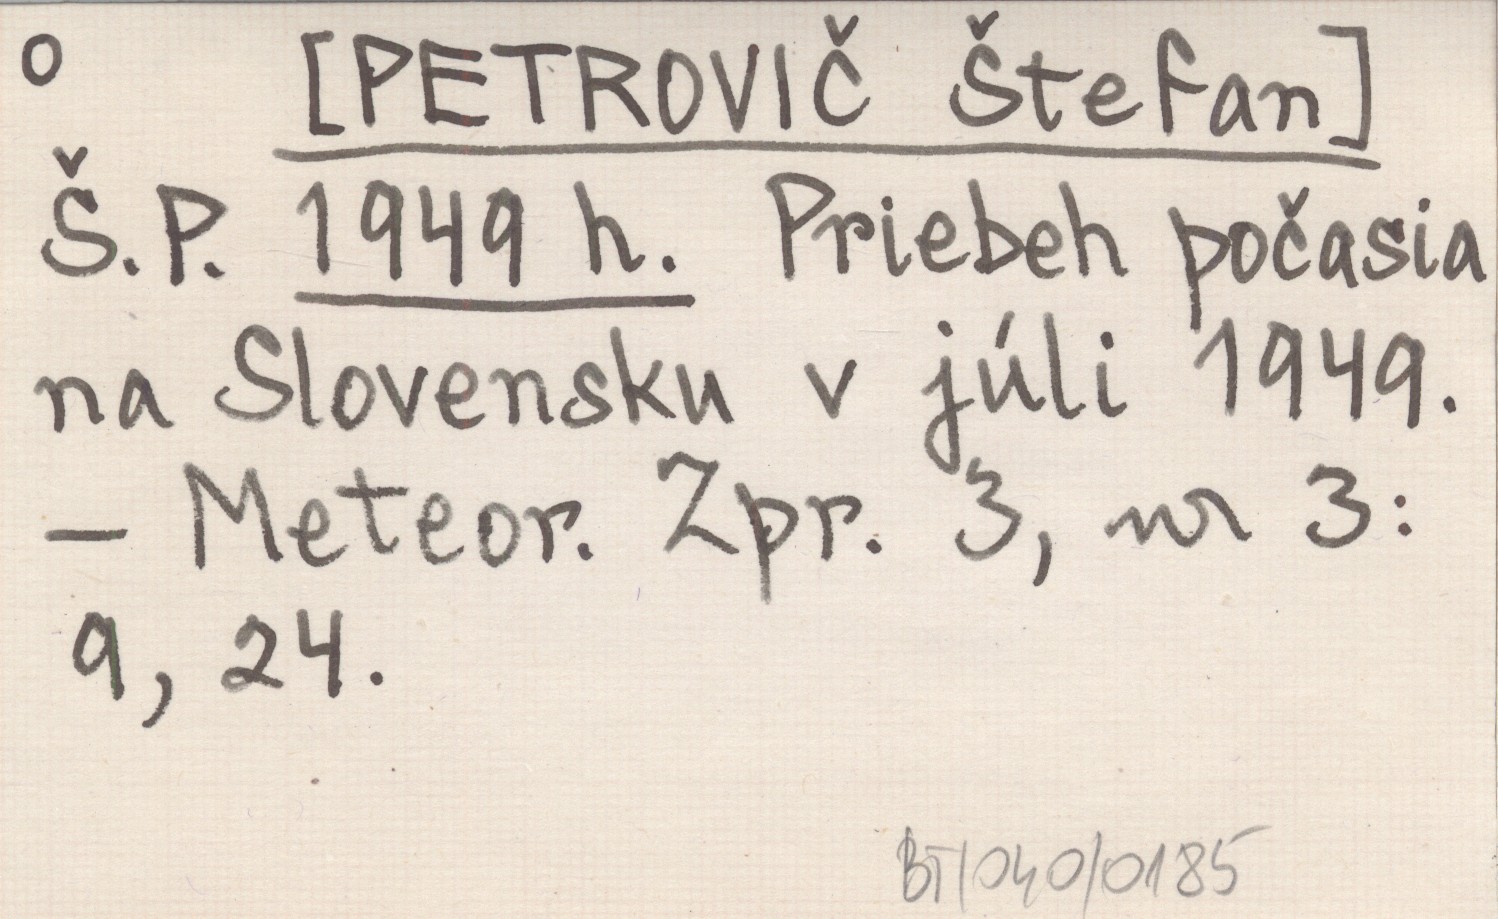 o [PETROVIČ Štefan]
Š.P. 1949 h. Priebeh počasia
na Slovensku v júli 1949.
– Meteor. Zpr. 3, nr 3:
9, 24.
BT/040/0185